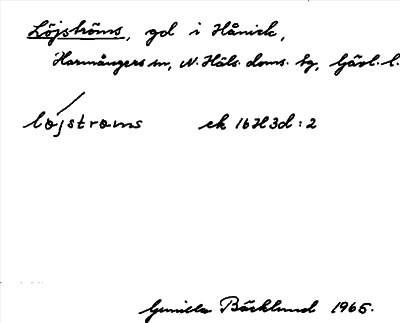 Löjströms, gd i Hånick,
Harmångers sn, N. Häls. doms. tg, Gävl. l.
løjstrøms ek 16H3d:2
Gunilla Bäcklund 1965.